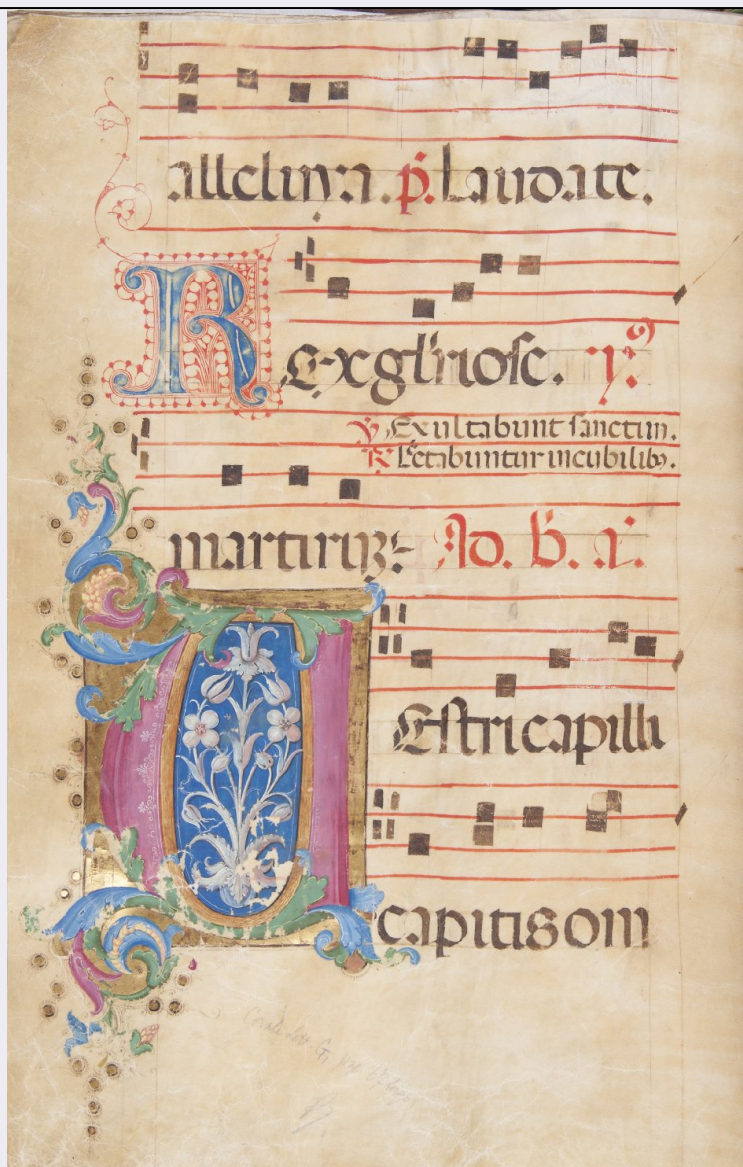 alleluya. p̄. Laudate.
REx gl'riose. y̾.
℣ Exultabunt sancti in.
℟ Letabuntur in cubilib9.
martiriȝ: Ad. b̄. a.
VEstri capilli
capitis om